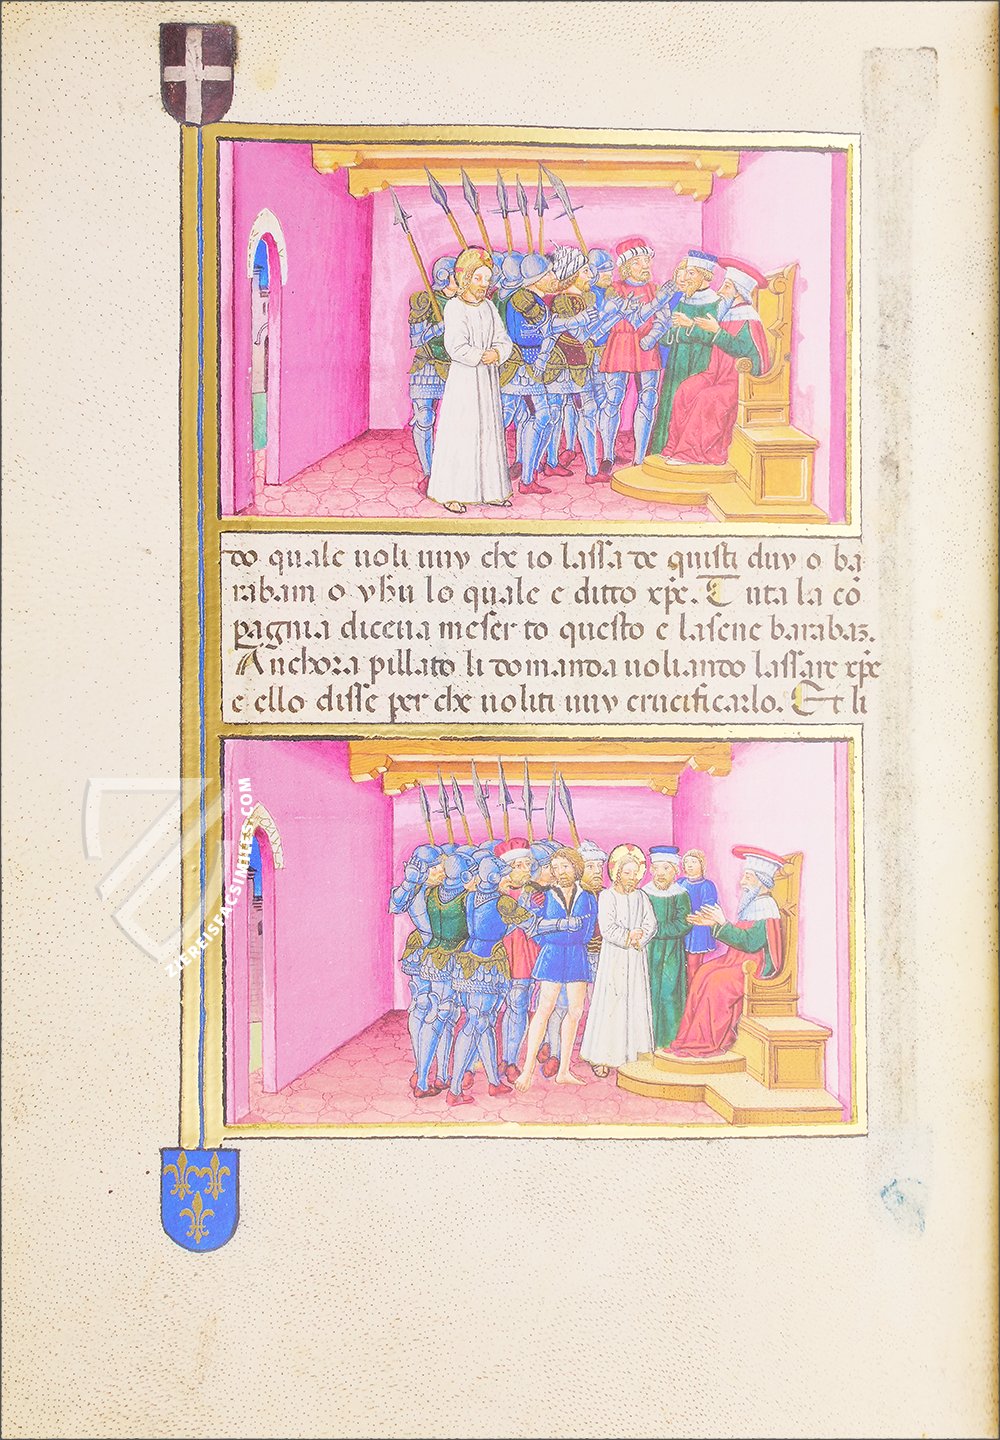 do quale uoli uuy che io lassa de quisti duy o ba
rabam o yhu lo quale e ditto xpe. Tuta la co
pagnia diceua meser to questo e lasene barabaz.
Anchora pillato li domanda uoliando lassare xpe
e ello disse per che uoliti uuy crucificarlo. Et li
ZIEREISFACSIMILES.COM